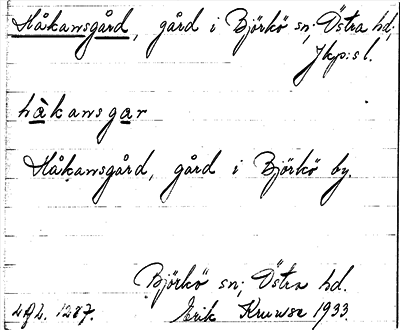 Håkansgård, gård i Björkö sn; Östra hd;
Jkp:s l.
hàkansgar
Håkansgård, gård i Björkö by.
Björkö sn; Östra hd.
Erik Kruuse 1933.
1287.